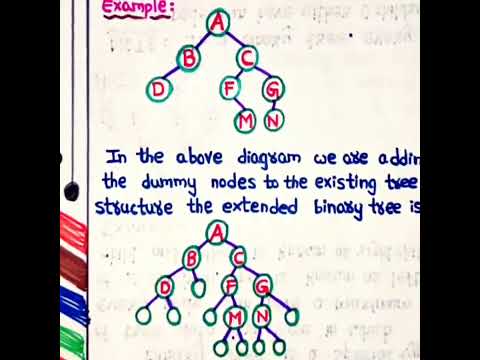 Example:
A
B C
D F G
M N
In the above diagram we are addin
the dummy nodes to the existing tree
structure the extended binary tree is
A
B C
D F G
M N